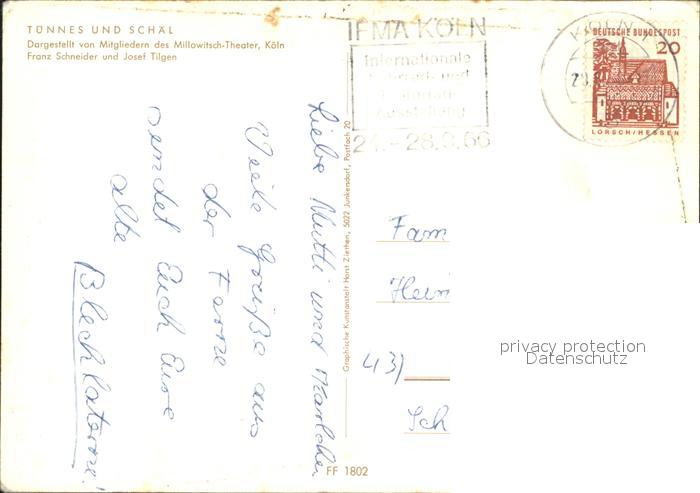 TÜNNES UND SCHÄL
Dargestellt von Mitgliedern des Millowitsch-Theater, Köln
Franz Schneider und Josef Tilgen
IFMA KÖLN
Internationale
und
Ausstellung
24.-28.9.66
KÖLN
DEUTSCHE BUNDESPOST
20
LORSCH/HESSEN
Liebe Mutti und Karlchen
Viele Grüße aus
der Farne
sendet Euch Eure
alte
Blechlaterne!
Graphische Kunstanstalt Horst Ziethen, 5022 Junkersdorf, Postfach 20
Fam
Hein
43)
Sch
privacy protection
Datenschutz
FF 1802